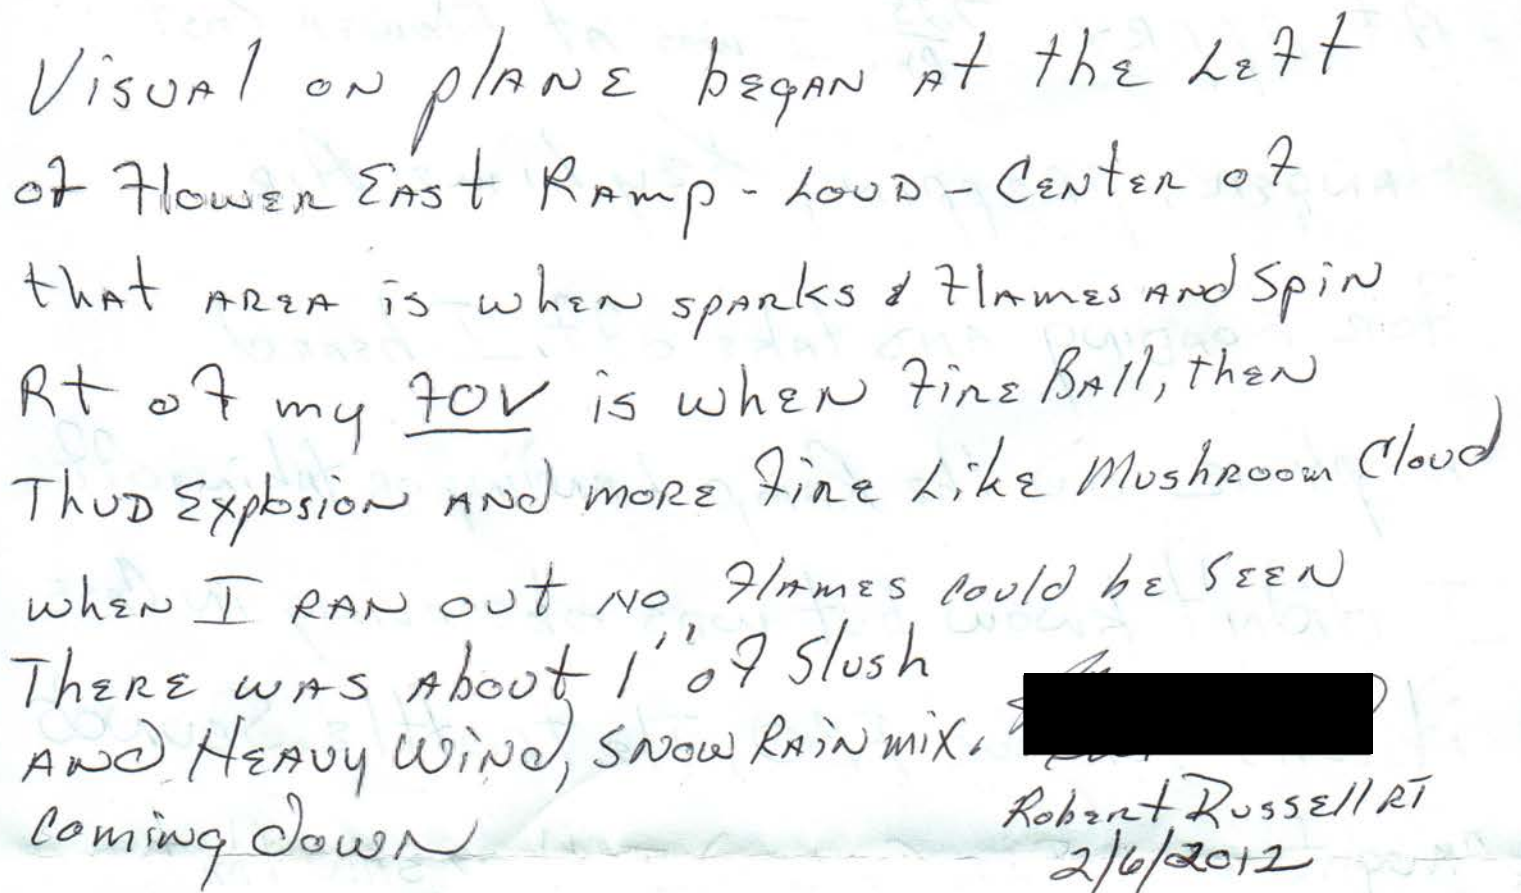 Visual on plane began at the Left
of Flower East Ramp - Loud - Center of
that area is when sparks & Flames and Spin
Rt of my FOV is when Fire Ball, then
Thud Explosion and more Fire Like Mushroom Cloud
when I ran out no Flames could be seen
There was about 1" of Slush
and Heavy Wind, Snow Rain mix.
Coming down
Robert Russell RT
2/6/2012